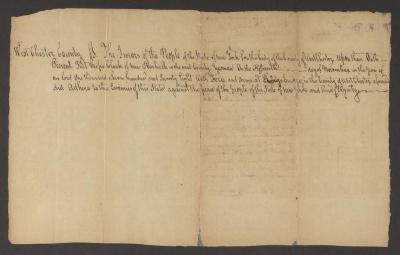 West Chester County ss The Jurors of the People of the State of new York for the body of the County of WestChester upon their Oath
Present That black of new Rochelle in the said County Yeoman On the fifteenth day of November in the year of
our Lord one thousand seven hundred and Seventy Eight with Force and Arms at bridge in the County of WestChester aforesaid
did Adhere to the Enemies of this State against the peace of the People of the State of new York and their Dignity